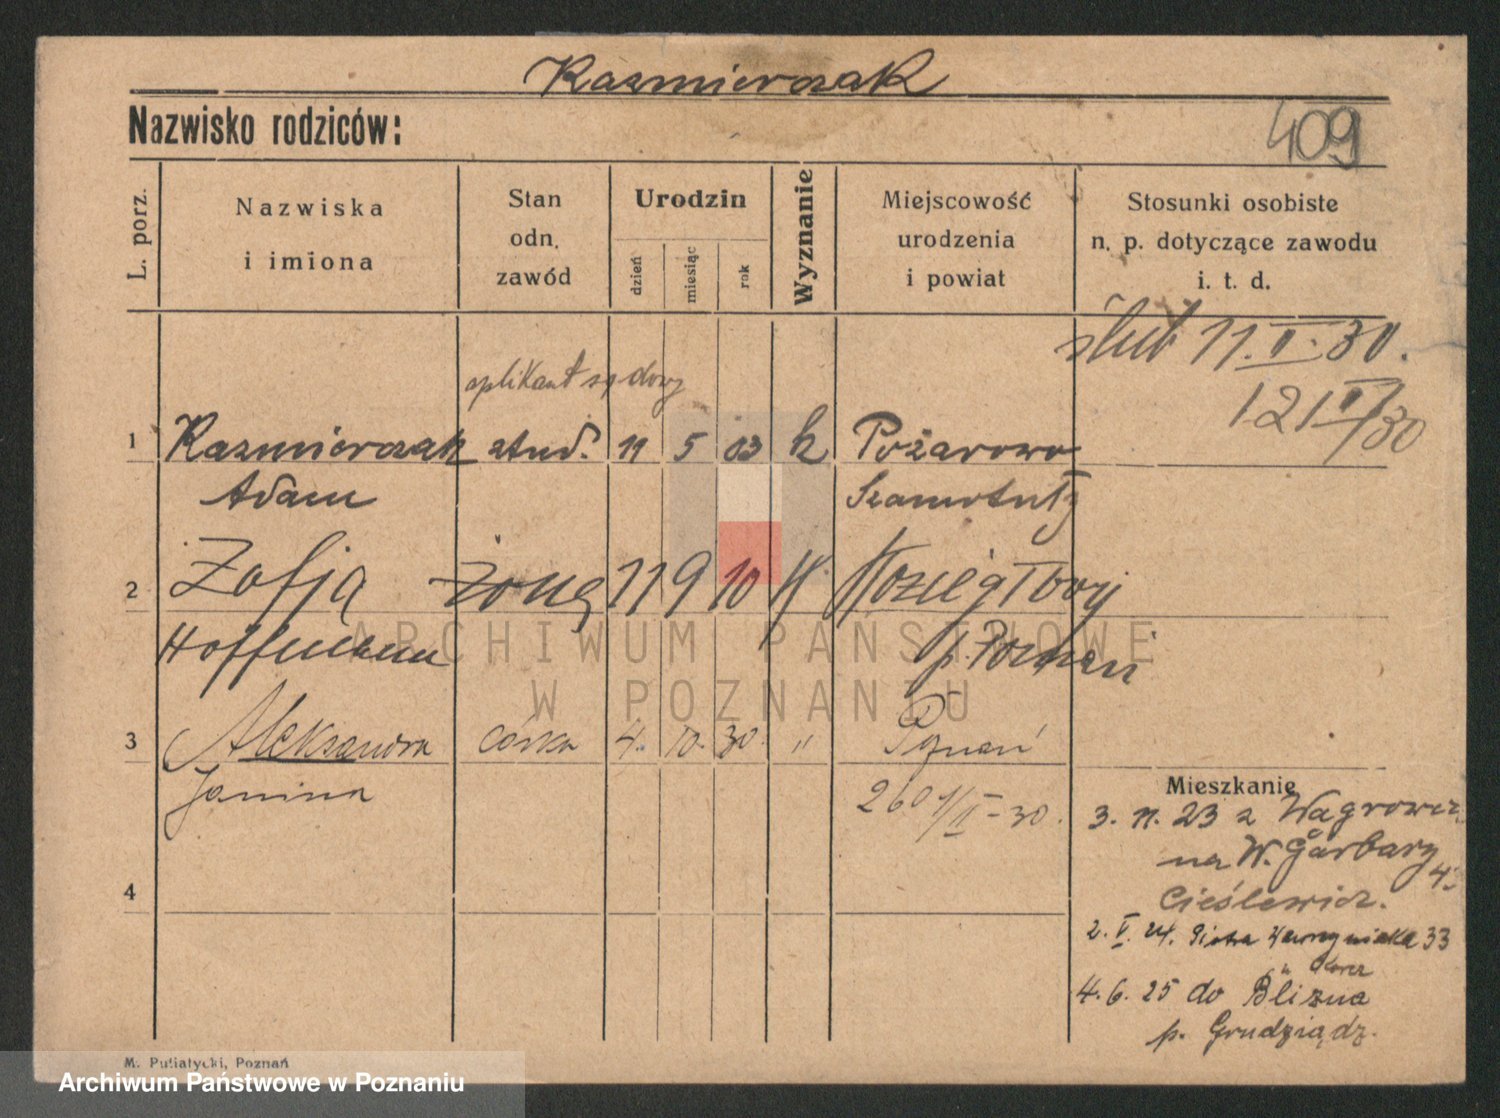 Kazmierczak
Nazwisko rodziców:
409
L. porz.
Nazwiska
i imiona
Stan
odn.
zawód
Urodzin
dzień
miesiąc
rok
Wyznanie
Miejscowość
urodzenia
i powiat
Stosunki osobiste
n. p. dotyczące zawodu
i. t. d.
ślub 11.II.30.
121 II/30
aplikant sądowy
1 Kazmierczak stud. 11 5 03 k Pożarowo
Adam Szamotuły
2 Zofja żona 11 9 10 K Koziegłowy
Hoffmann p. Poznań
ARCHIWUM PAŃSTWOWE
W POZNANIU
3 Aleksandra córka 4. 10. 30. " Poznań
Janina 260 1/II-30.
Mieszkanie
3. 11. 23 z Wągrowca
na W. Garbary
43
Cieślewicz.
4
2. V. 24. Piotra Wawrzyniaka 33
4. 6. 25 do Blizna
p. Grudziądz.
M. Putiatycki, Poznań
Archiwum Państwowe w Poznaniu